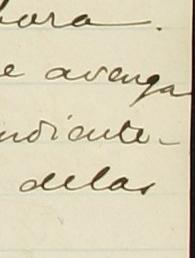 bora.
e avenga
ndiente-
delas